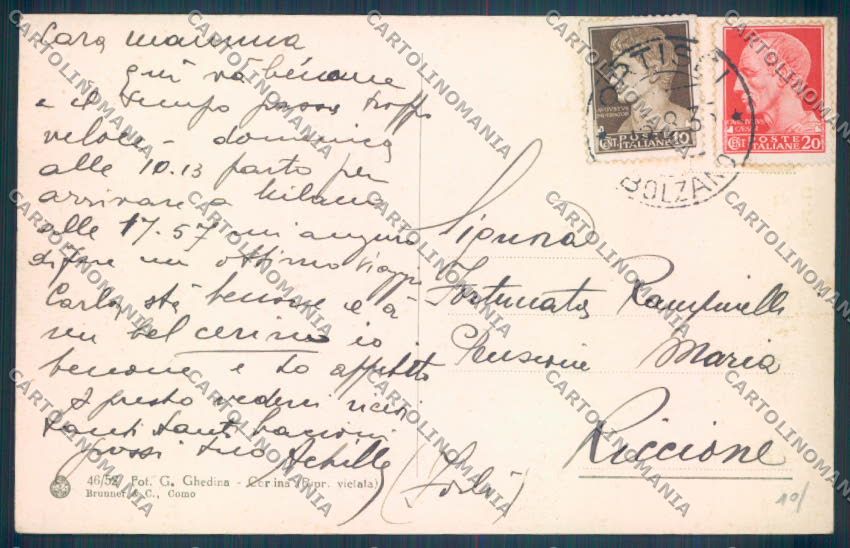 Cara mamma
qui va benone
e il tempo passa troppo
veloce - domenica
alle 10.13 parto per
arrivare a Milano
alle 17.57 mi auguro
di fare un ottimo viaggio
Carla stà benone e à
un bel cerino io
benone e ho appetito
A presto vederci ricevi
tanti tanti bacioni
grossi tuo Achille
46/52 Fot. G. Ghedina - Cortina (Ripr. vietata)
Brunner & C., Como
ORTISEI
BOLZANO
AVGVSTVS
IMPERATOR
POSTE
CENT. ITALIANE 10
CAESAR
POSTE
CENT. ITALIANE 20
Signora
Fortunata Rampinelli
Pensione Maria
Riccione
(Forlì)
10/
CARTOLINOMANIA